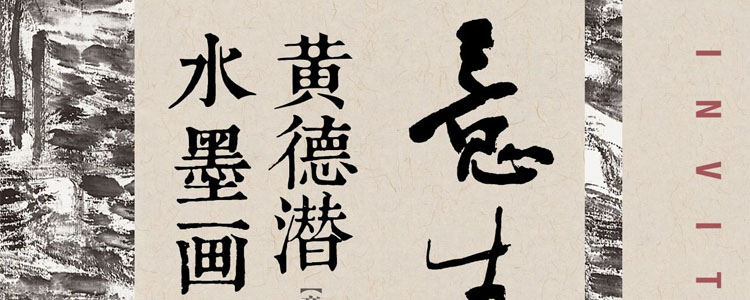 意
黄德潜
水墨画
INVIT